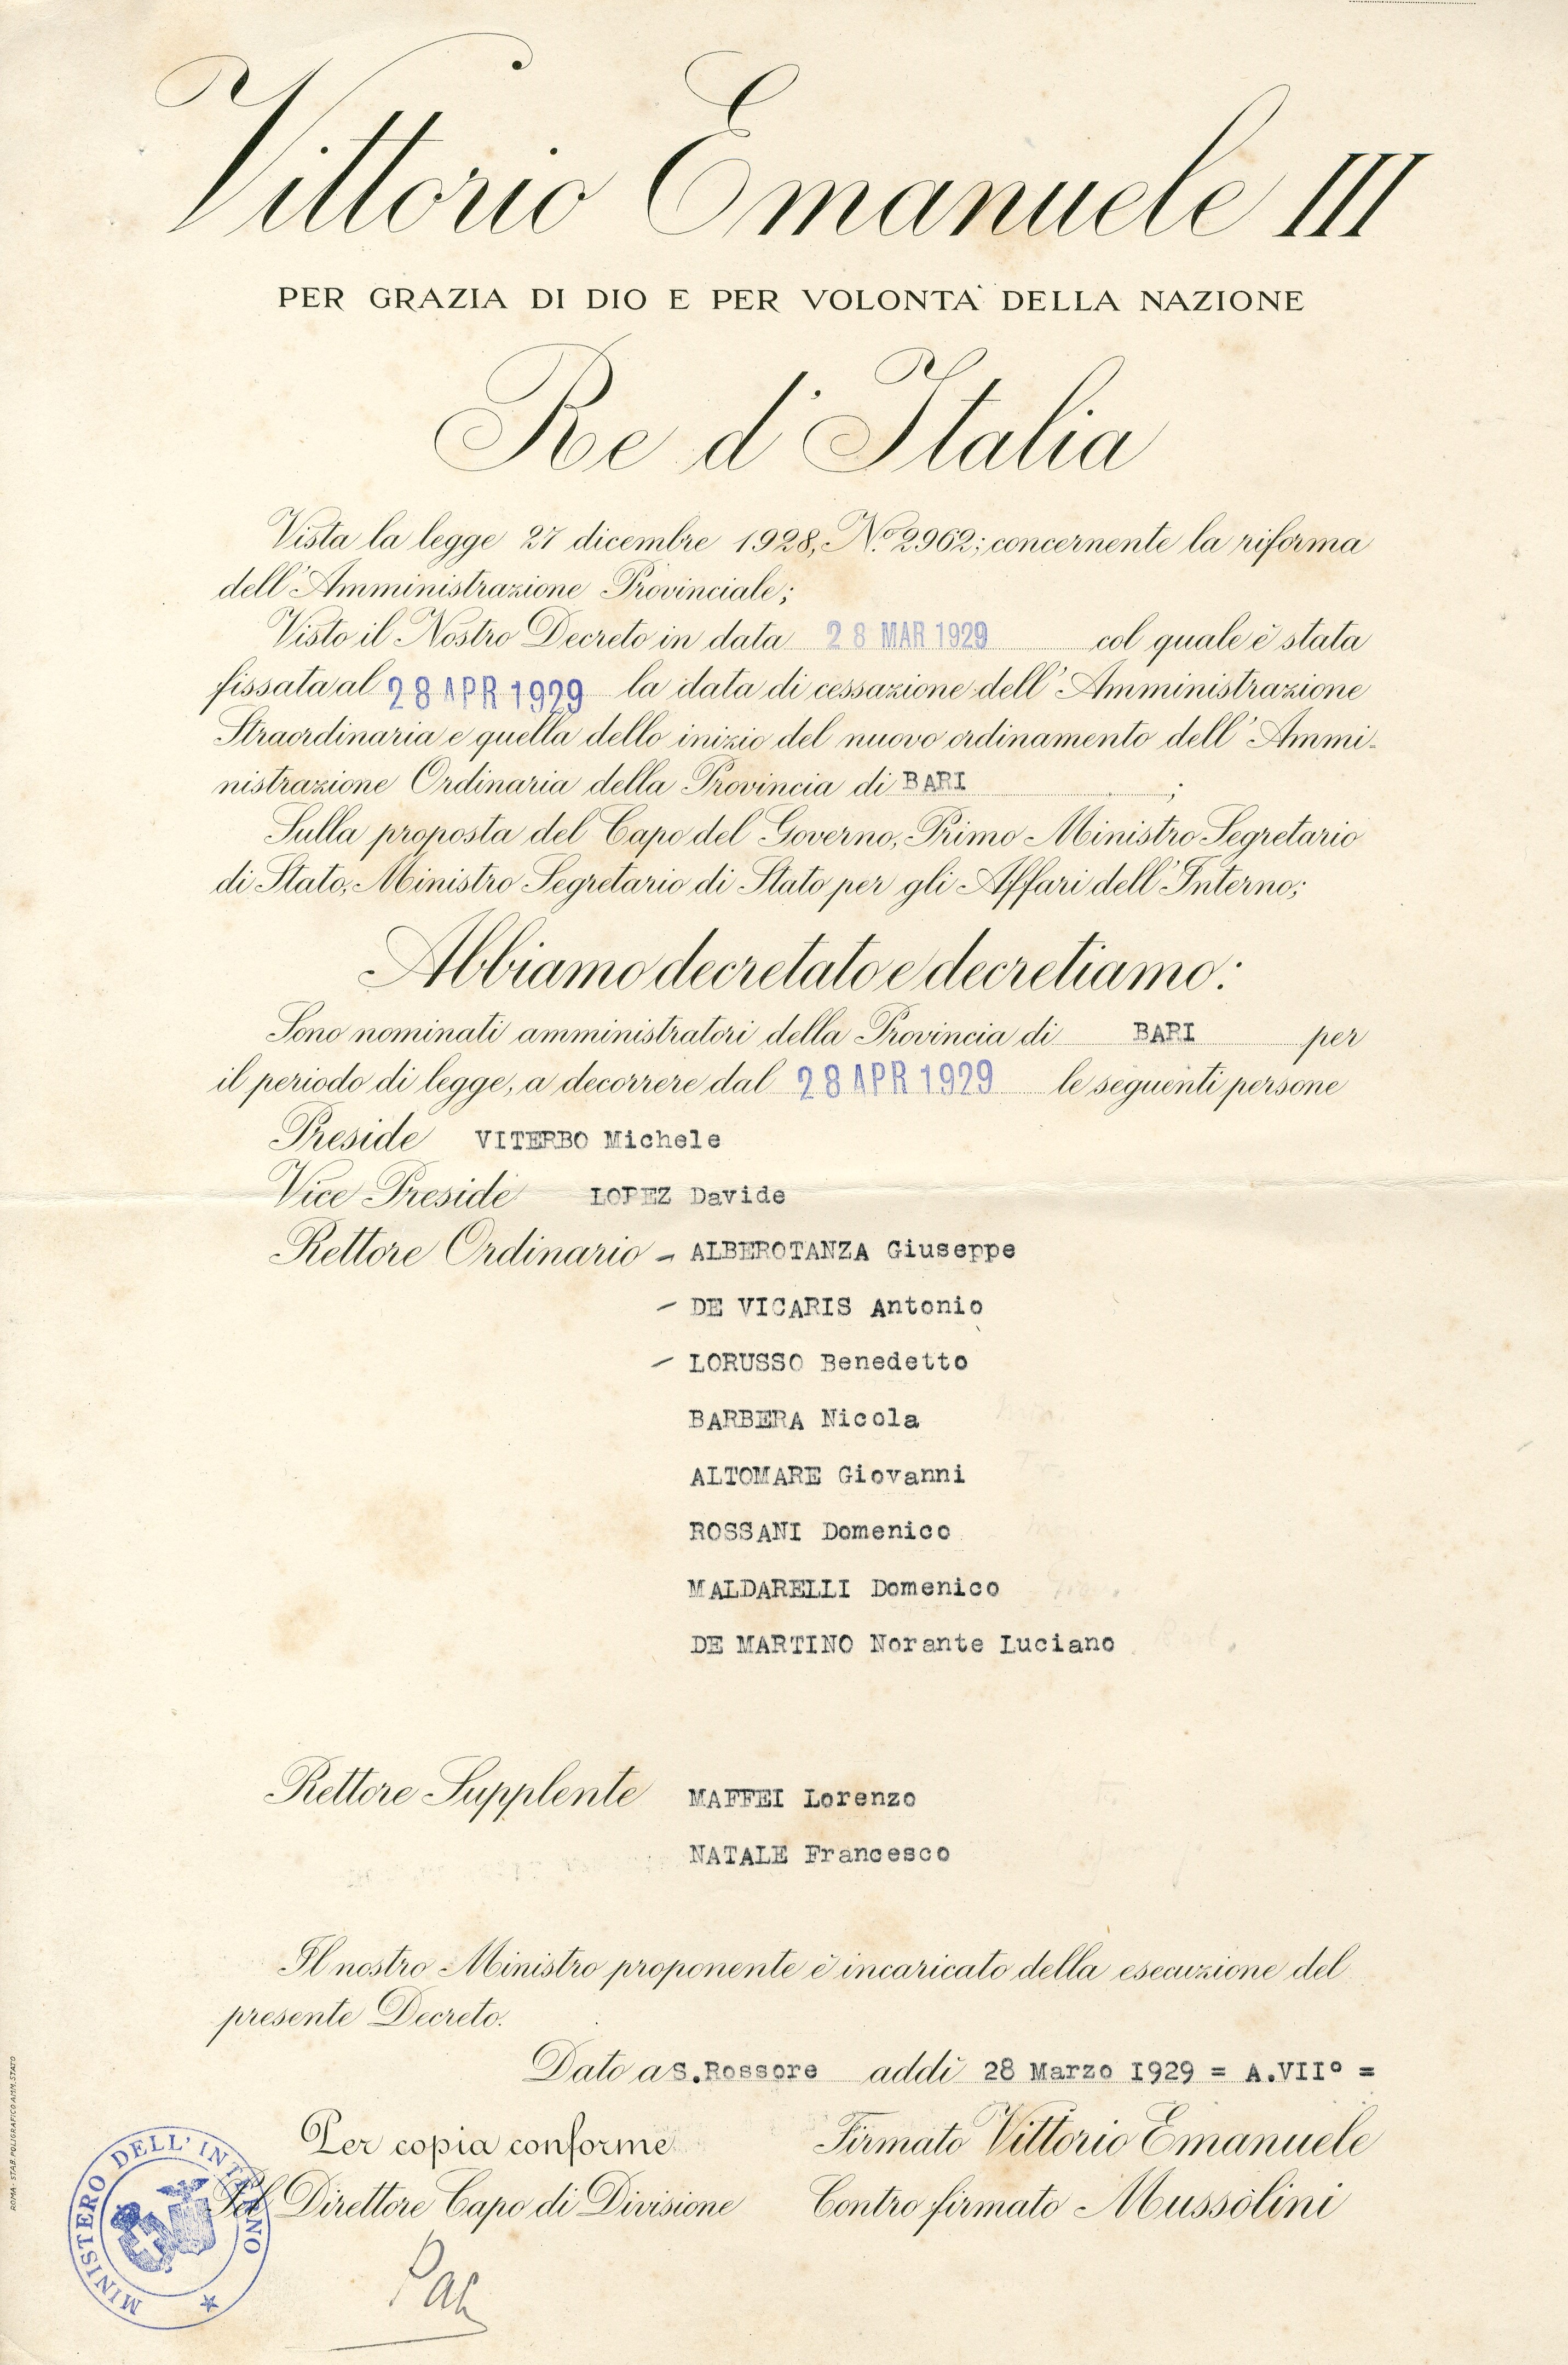 Vittorio Emanuele III
PER GRAZIA DI DIO E PER VOLONTA' DELLA NAZIONE
Re d'Italia
Vista la legge 27 dicembre 1928, N.º 2962; concernente la riforma
dell'Amministrazione Provinciale;
Visto il Nostro Decreto in data 28 MAR 1929 col quale è stata
fissata al 28 APR 1929 la data di cessazione dell'Amministrazione
Straordinaria e quella dello inizio del nuovo ordinamento dell'Ammi-
nistrazione Ordinaria della Provincia di BARI ;
Sulla proposta del Capo del Governo, Primo Ministro Segretario
di Stato, Ministro Segretario di Stato per gli Affari dell'Interno;
Abbiamo decretato e decretiamo:
Sono nominati amministratori della Provincia di BARI per
il periodo di legge, a decorrere dal 28 APR 1929 le seguenti persone
Preside VITERBO Michele
Vice Preside LOPEZ Davide
Rettore Ordinario - ALBEROTANZA Giuseppe
- DE VICARIS Antonio
- LORUSSO Benedetto
BARBERA Nicola
ALTOMARE Giovanni
ROSSANI Domenico
MALDARELLI Domenico
DE MARTINO Norante Luciano
Rettore Supplente MAFFEI Lorenzo
NATALE Francesco
Il nostro Ministro proponente è incaricato della esecuzione del
presente Decreto.
Dato a S.Rossore addì 28 Marzo 1929 = A.VIIº =
Per copia conforme
Firmato Vittorio Emanuele
Direttore Capo di Divisione
Contro firmato Mussolini
MINISTERO DELL'INTERNO
ROMA - STAB. POLIGRAFICO AMM. STATO